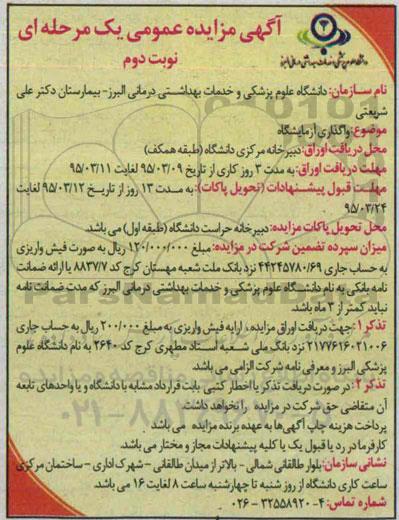 آگهی مزایده عمومی یک مرحله ای
نوبت دوم
دانشگاه علوم پزشکی و خدمات بهداشتی درمانی البرز
نام سازمان: دانشگاه علوم پزشکی و خدمات بهداشتی درمانی البرز- بیمارستان دکتر علی
شریعتی
موضوع: واگذاری آزمایشگاه
محل دریافت اوراق: دبیرخانه مرکزی دانشگاه (طبقه همکف)
مهلت دریافت اوراق: به مدت ۳ روز کاری از تاریخ ۹۵/۰۳/۰۹ لغایت ۹۵/۰۳/۱۱
مهلت قبول پیشنهادات (تحویل پاکات): به مدت ۱۳ روز از تاریخ ۹۵/۰۳/۱۲ لغایت
۹۵/۰۳/۲۴
محل تحویل پاکات مزایده: دبیرخانه حراست دانشگاه (طبقه اول) می باشد.
میزان سپرده تضمین شرکت در مزایده: مبلغ ۱۲۰/۰۰۰/۰۰۰ ریال به صورت فیش واریزی
به حساب جاری ۴۴۲۴۵۷۸۰/۶۹ نزد بانک ملت شعبه مهستان کرج کد ۸۸۳۷/۷ یا ارائه ضمانت
نامه بانکی به نام دانشگاه علوم پزشکی و خدمات بهداشتی درمانی البرز که مدت ضمانت نامه
نباید کمتر از ۳ ماه باشد.
تذکر ۱: جهت دریافت اوراق مزایده، ارایه فیش واریزی به مبلغ ۲۰۰/۰۰۰ ریال به حساب جاری
۲۱۷۷۶۱۶۰۲۱۰۰۶ نزد بانک ملی شعبه استاد مطهری کرج کد ۲۶۴۰ به نام دانشگاه علوم
پزشکی البرز و معرفی نامه شرکت الزامی می باشد.
تذکر ۲: در صورت دریافت تذکر یا اخطار کتبی بابت قرارداد مشابه با دانشگاه و یا واحدهای تابعه
آن متقاضی حق شرکت در مزایده را نخواهد داشت.
پرداخت هزینه چاپ آگهی ها به عهده برنده مزایده می باشد.
کارفرما در رد یا قبول یک یا کلیه پیشنهادات مجاز و مختار می باشد.
نشانی سازمان: بلوار طالقانی شمالی - بالاتر از میدان طالقانی - شهرک اداری - ساختمان مرکزی
ساعت کاری دانشگاه از روز شنبه تا چهارشنبه ساعت ۸ لغایت ۱۶ می باشد.
شماره تماس: ۴-۳۲۵۵۸۹۲۰-۰۲۶